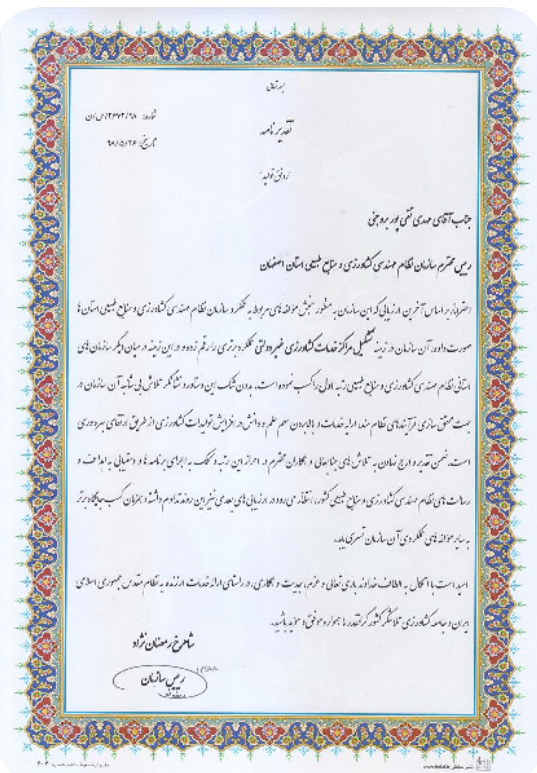 بسمه تعالی
شماره: ۲۶۷۲/۹۸/س/ن
تاریخ: ۹۸/۵/۲۶
تقدیر نامه
رونق تولید
جناب آقای مهدی تقی پور بروجنی
رییس محترم سازمان نظام مهندسی کشاورزی و منابع طبیعی استان اصفهان
احتراما، بر اساس آخرین ارزیابی که این سازمان به منظور سنجش مولفه های مربوط به عملکرد سازمان نظام مهندسی کشاورزی و منابع طبیعی استان ها
صورت داده، آن سازمان در زمینه تشکیل مراکز خدمات کشاورزی غیر دولتی عملکرد برتری را رقم زده و در این زمینه در میان دیگر سازمان های
استانی نظام مهندسی کشاورزی و منابع طبیعی رتبه اول را کسب نموده است. بدون شک این دستاورد نشانگر تلاش بی شائبه آن سازمان در
جهت محقق سازی فرآیندهای نظام مند، ارایه خدمات و بالا بردن سهم علم و دانش در افزایش تولیدات کشاورزی از طریق ارتقای بهره وری
است. ضمن تقدیر و ارج نهادن به تلاش های جنابعالی و همکاران محترم در احراز این رتبه و کمک به اجرای برنامه ها و دستیابی به اهداف و
رسالت های نظام مهندسی کشاورزی و منابع طبیعی کشور، انتظار می رود در ارزیابی های بعدی نیز این روند تداوم داشته و همزمان کسب جایگاه برتر
به سایر مولفه های عملکردی آن سازمان تسری یابد.
امید است با اتکال به الطاف خداوند باری تعالی و عزم، جدیت و همکاری، در راستای ارائه خدمات ارزنده به نظام مقدس جمهوری اسلامی
ایران و جامعه کشاورزی تلاشگر کشور گرانقدر ما همواره موفق و موید باشید.
شاهرخ رمضان نژاد
رییس سازمان